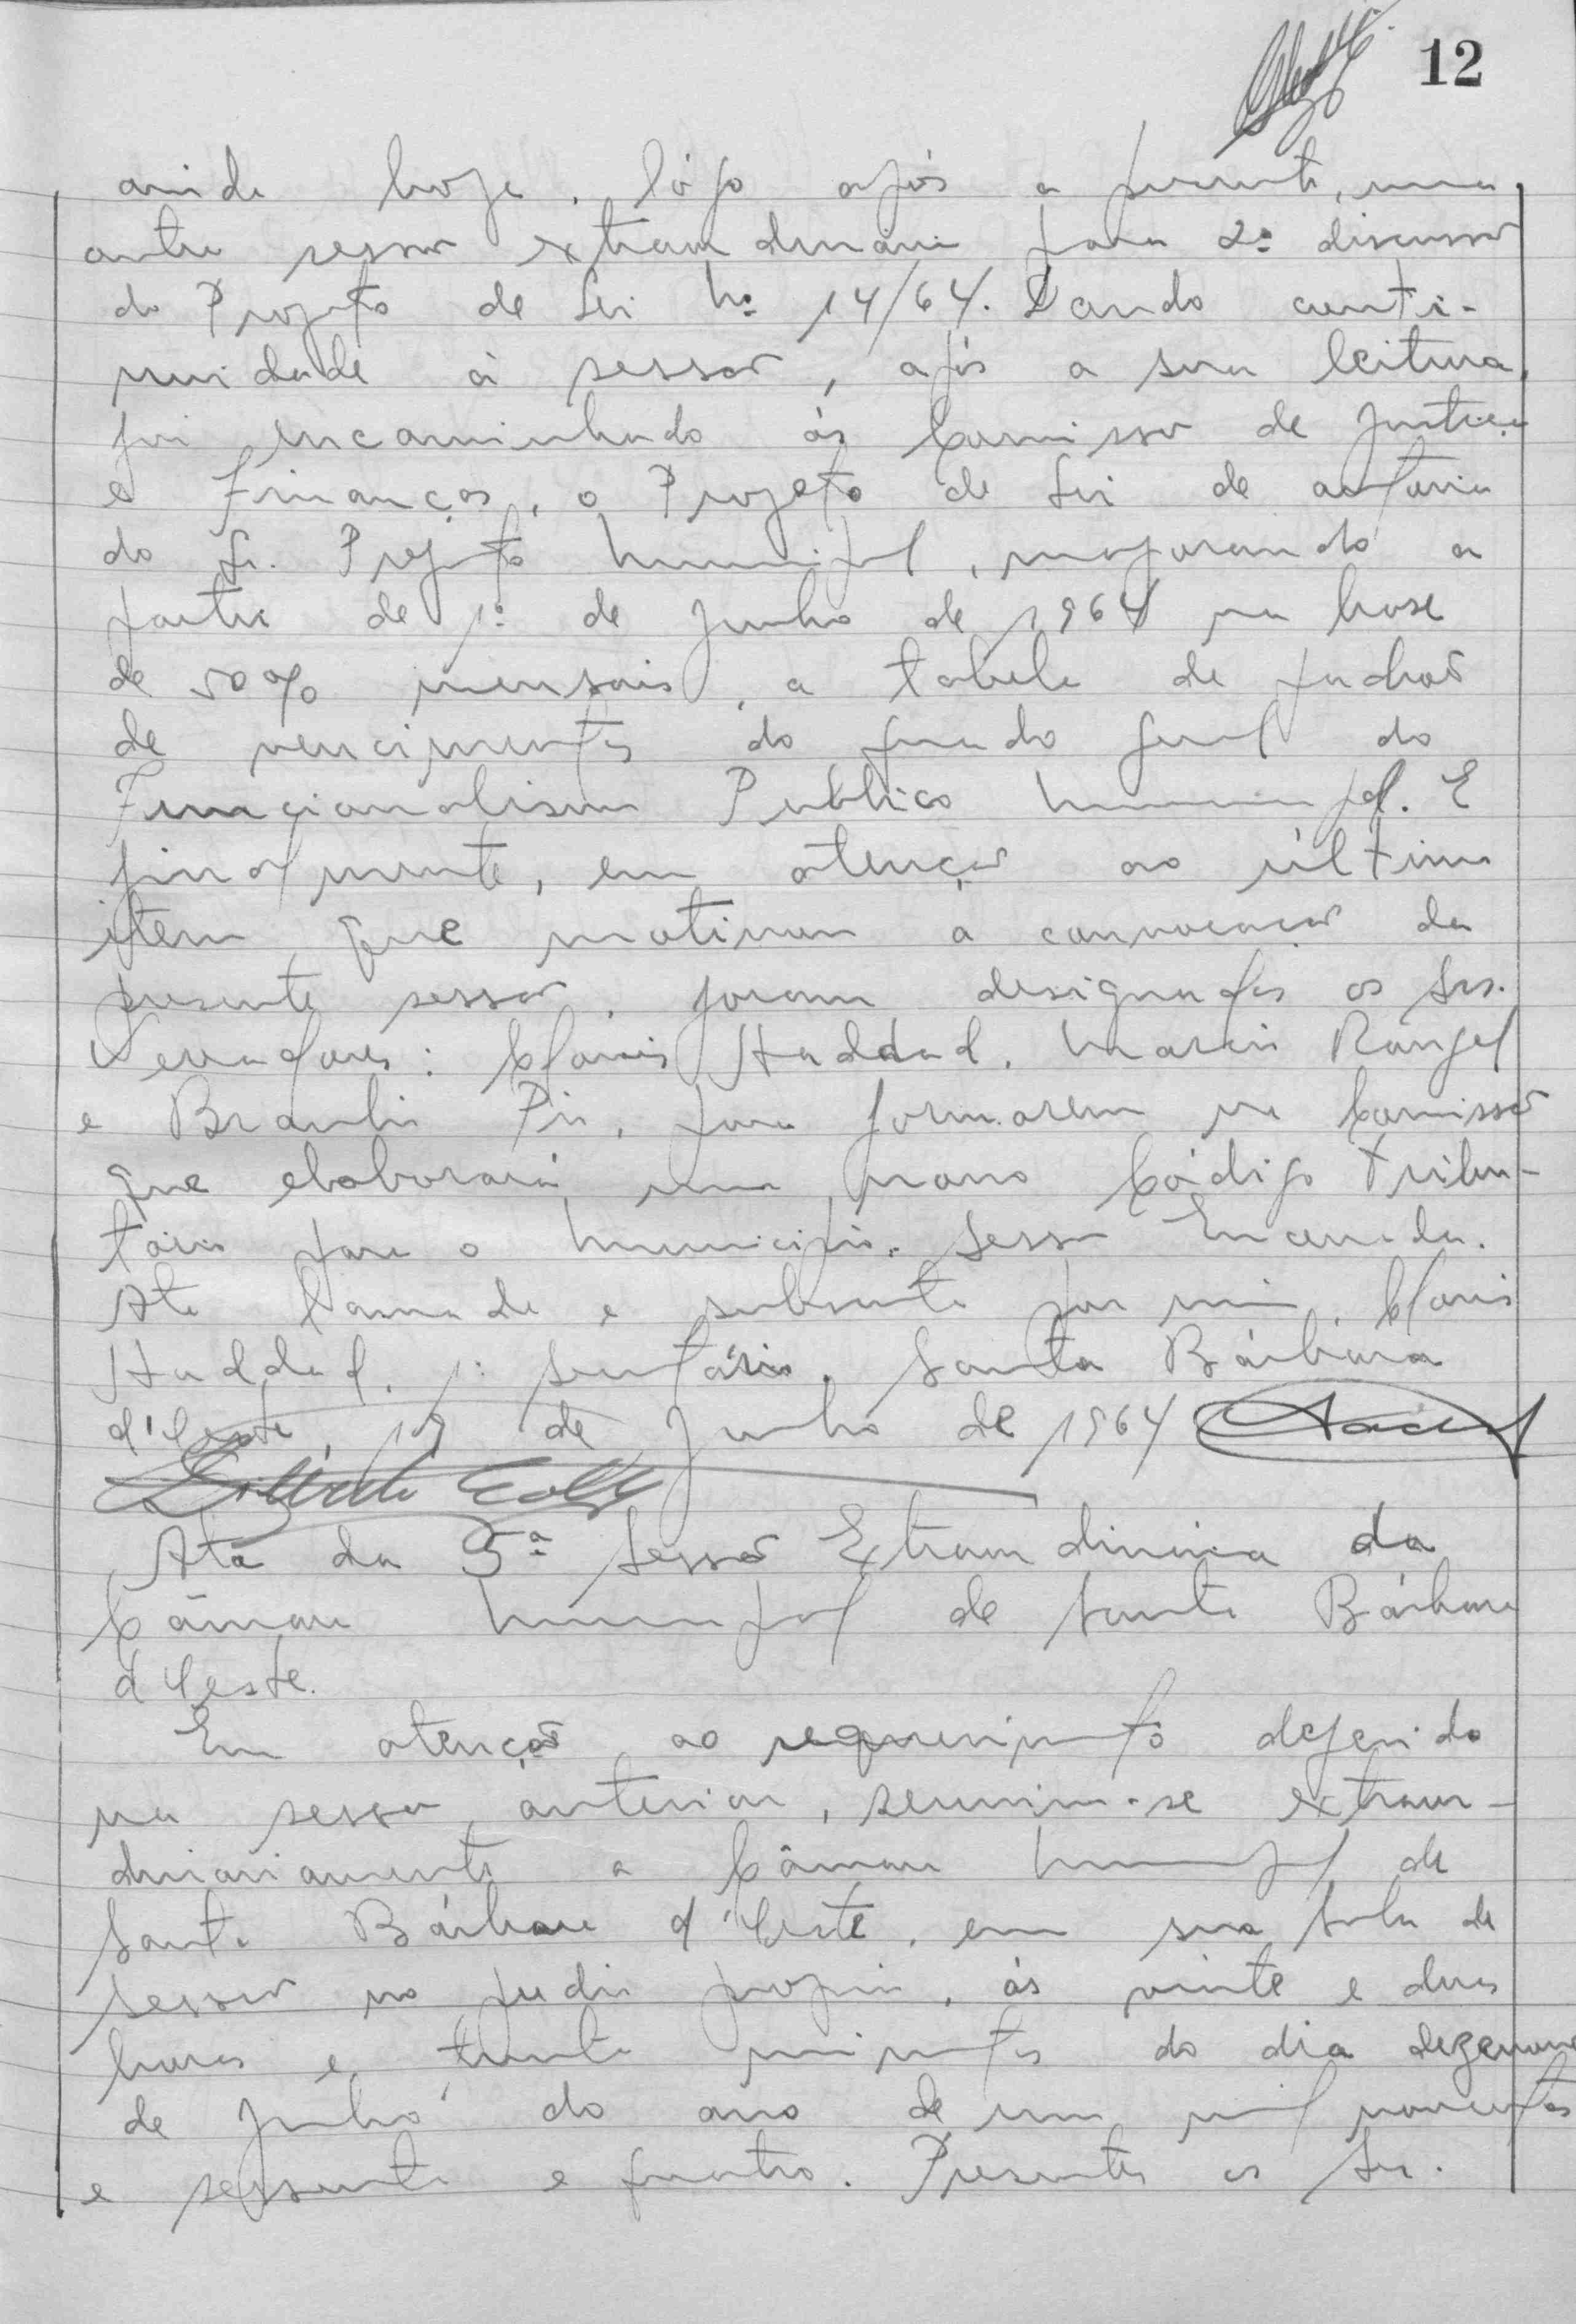 12
ainda hoje, lógo após a presente, uma
outra sessão extraordinária para 2ª discussão
do Projeto de Lei Nº 14/64. Dando conti-
nuidade à sessão, após a sua leitura,
foi encaminhado ás Comissão de Justiça
e Finanças, o Projeto de Lei de autoria
do Sr. Prefeito Municipal, majorando a
partir de 1º de Junho de 1964 na base
de 50% mensais, a tabela de padrão
de vencimentos do quadro geral do
Funcionalismo Publico Municipal. E
finalmente, em atenção ao último
item que motivou a convocação da
presente sessão, foram designados os Srs.
Vereadores: Clovis Haddad, Mario Rangel
e Braulio Pio, para formarem na Comissão
que elaborará um novo Código Tribu-
tário para o Município. Sessão Encerrada.
Ata lavrada e subscrita por mim, Clovis
Haddad, 1º Secretário. Santa Bárbara
d'Oeste, 19 de Junho de 1964
Ata da 5ª Sessão Extraordinária da
Câmara Municipal de Santa Bárbara
d'Oeste.
Em atenção ao requerimento deferido
na sessão anterior, reuniu-se extraor-
dinariamente a Câmara Municipal de
Santa Bárbara d'Oeste, em sua sala de
sessão no prédio proprio, ás vinte e duas
horas e trinta minutos do dia dezenove
de Junho do ano de um mil novecentos
e sessenta e quatro. Presentes os Srs.